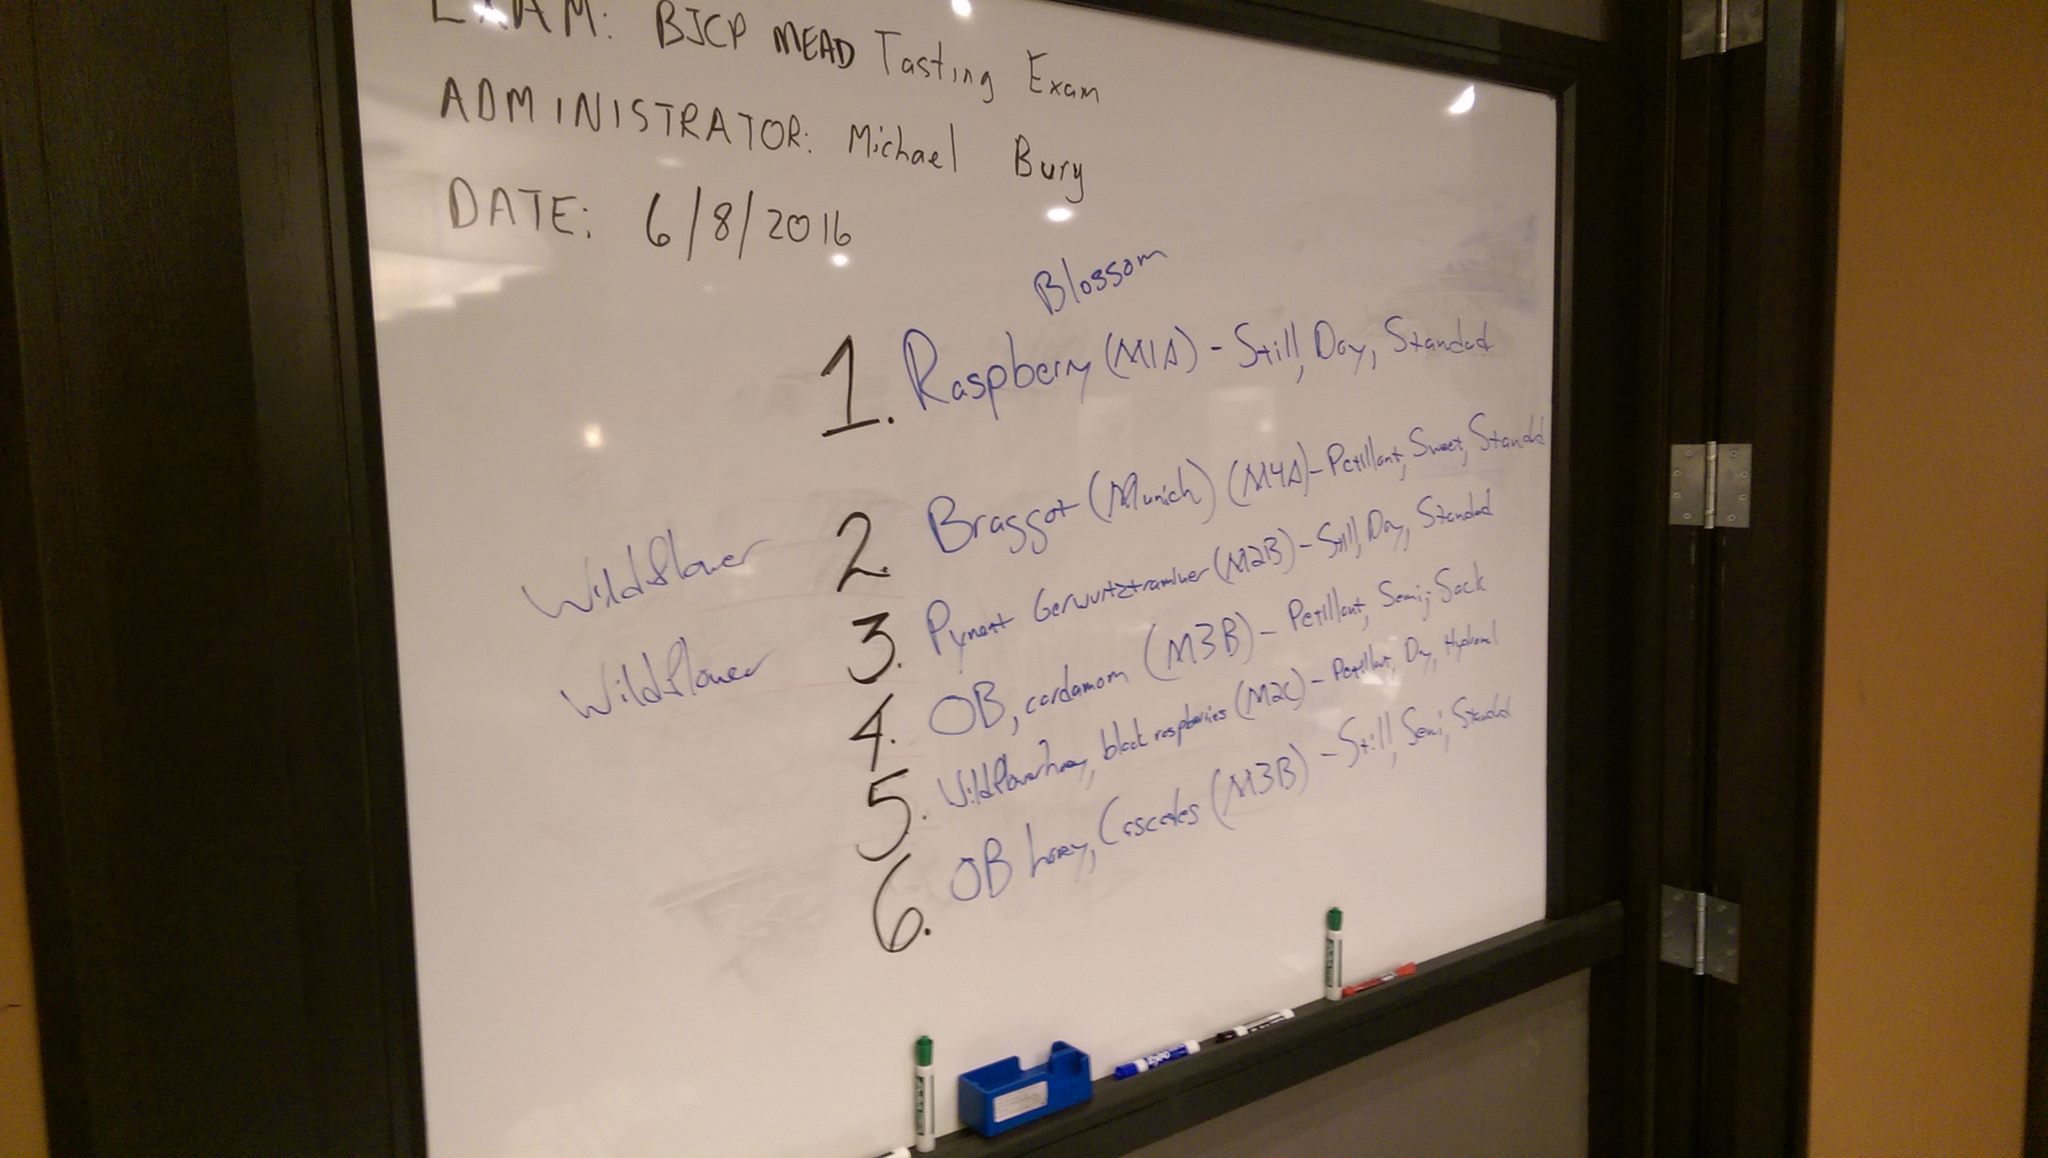 EXAM: BJCP MEAD Tasting Exam
ADMINISTRATOR: Michael Bury
DATE: 6/8/2016
Blossom
1. Raspberry (M1A) - Still, Dry, Standard
Wildflower 2. Braggot (Munich) (M4A) - Petillant, Sweet, Standard
Wildflower 3. Pyment Gerwurtztraminer (M2B) - Still, Dry, Standard
4. OB, cardamom (M3B) - Petillant, Semi, Sack
5. Wildflower honey, black raspberries (M2C) - Petillant, Dry, Hydromel
6. OB honey, Cascades (M3B) - Still, Semi, Standard